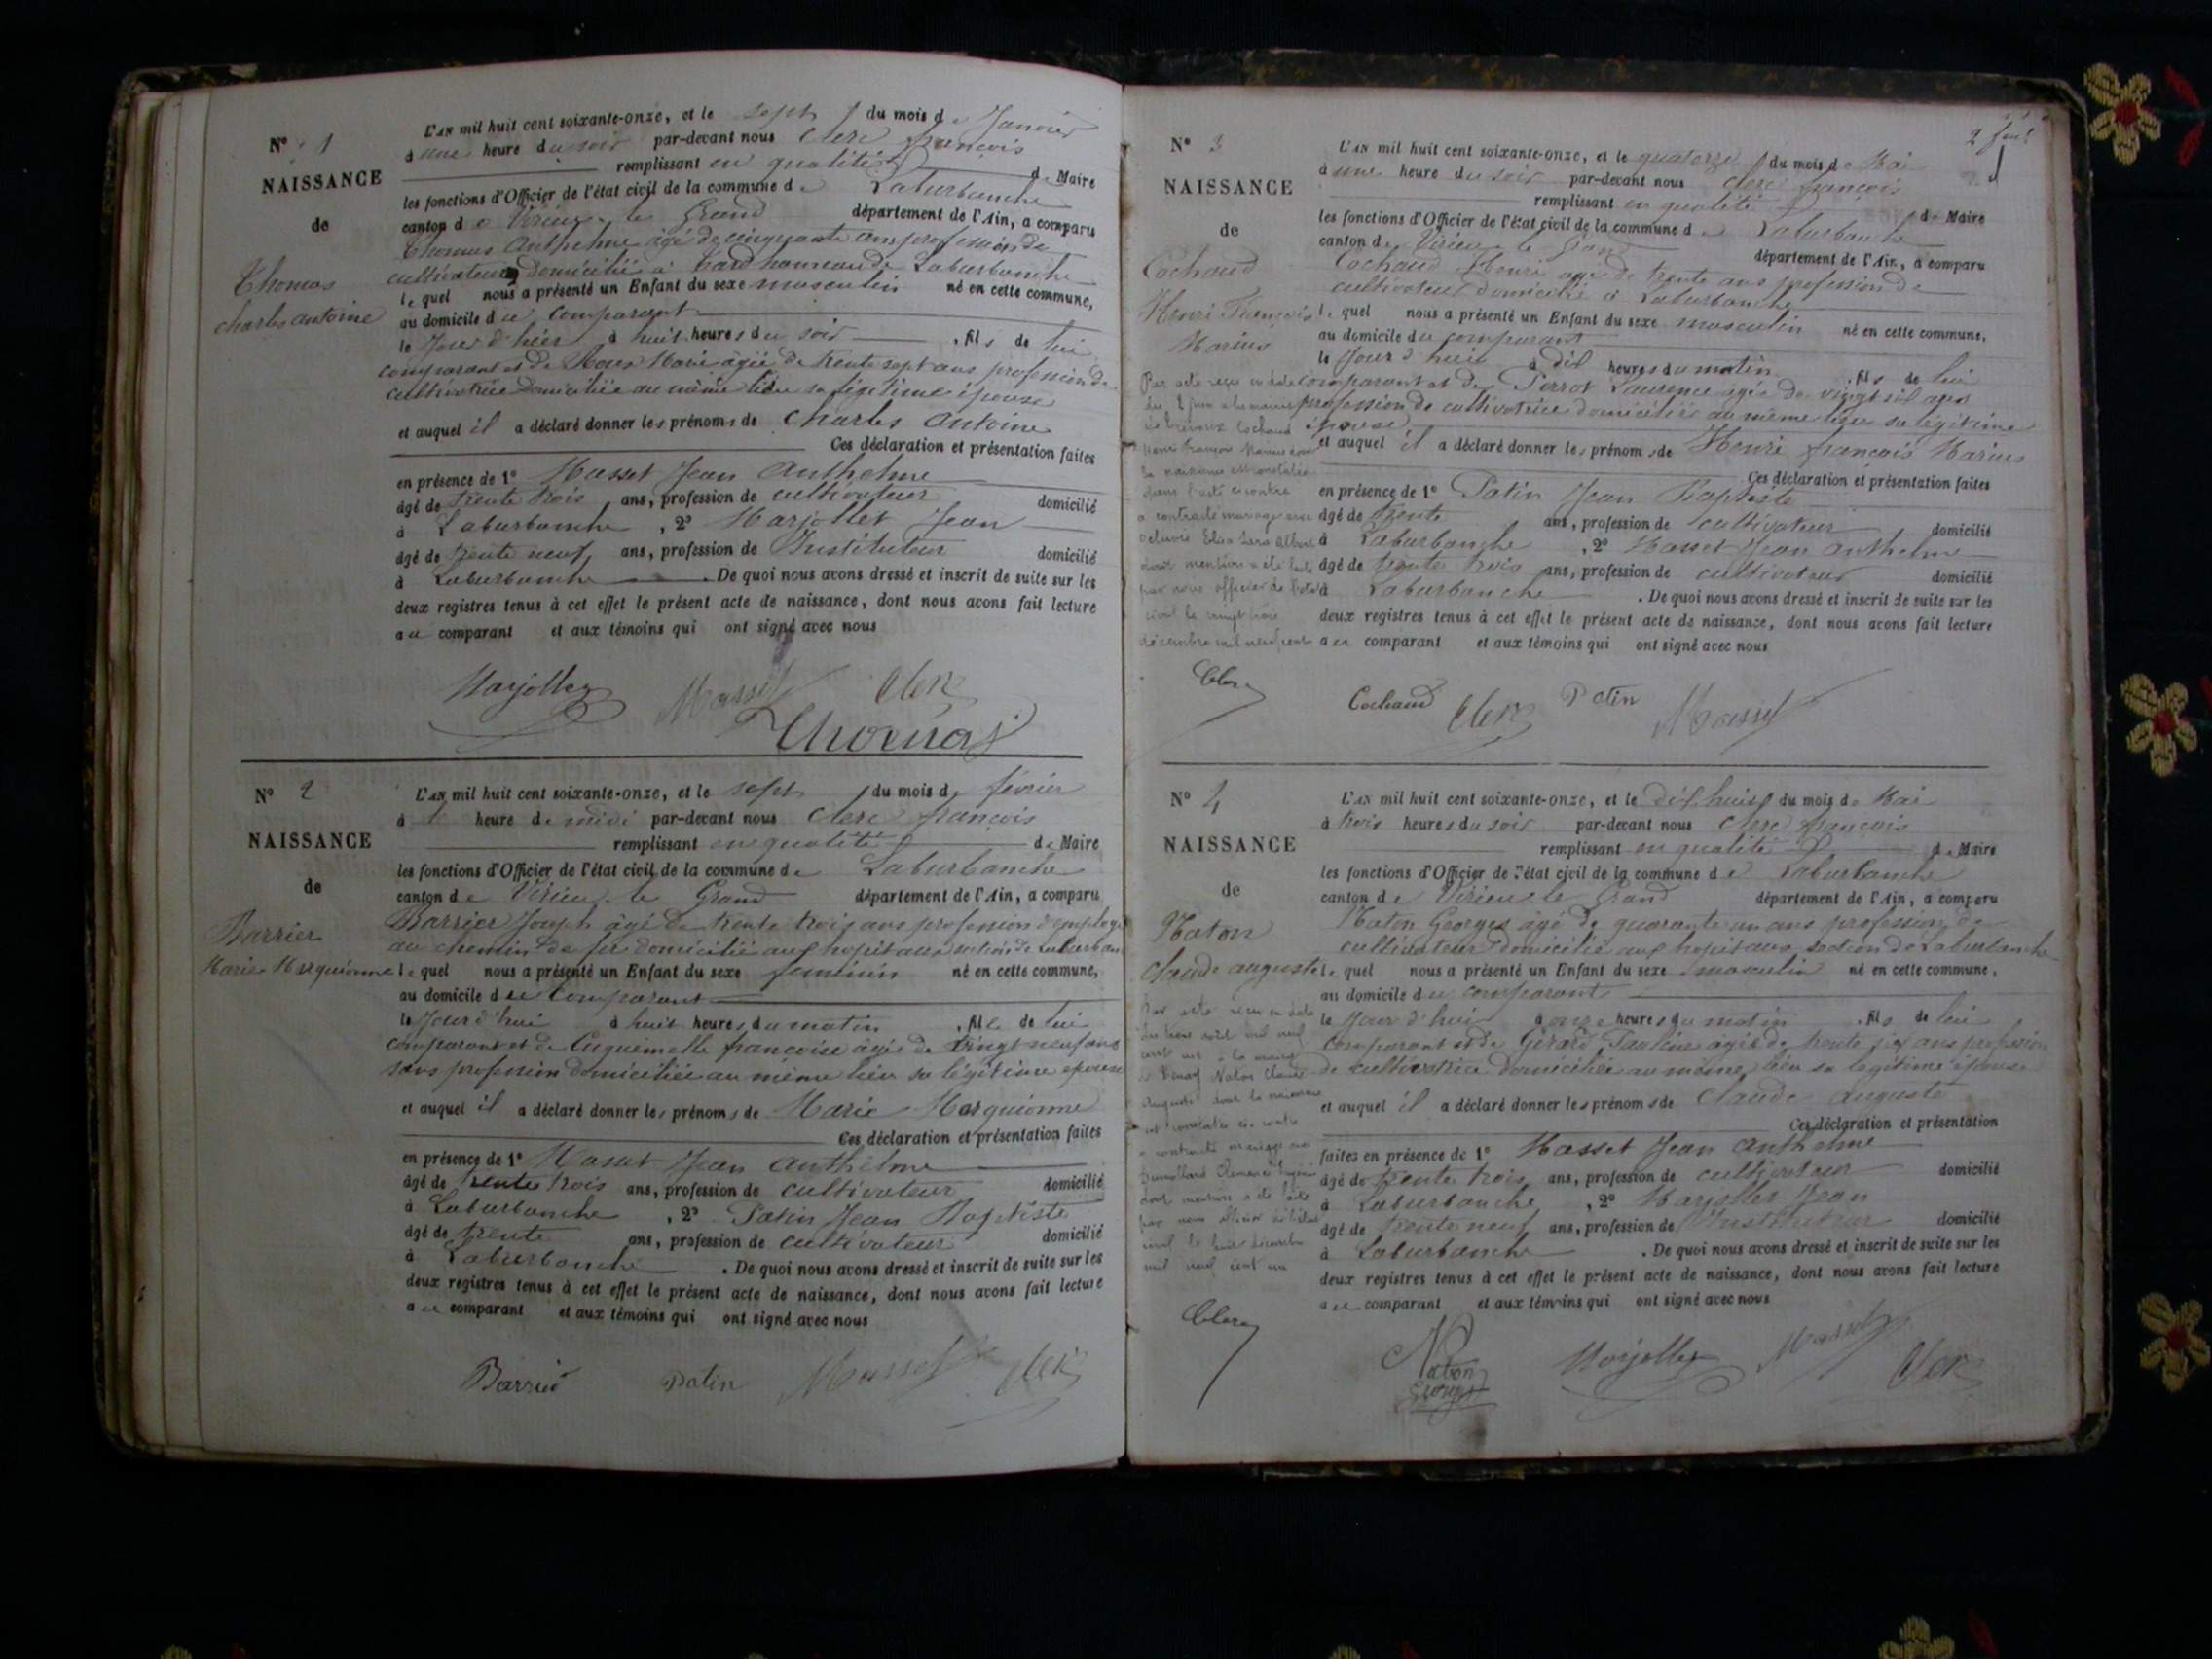 N° 1
NAISSANCE
de
Thomas
charles antoine
L'AN mil huit cent soixante-onze, et le sept du mois de Janvier
à une heure du soir par-devant nous Clerc françois
remplissant en qualité de Maire
les fonctions d'Officier de l'état civil de la commune de Laburbanche
canton de Virieu le Grand département de l'Ain, a comparu
Thomas Anthelme âgé de cinquante ans profession de
cultivateur domicilié à hameau de Laburbanche
lequel nous a présenté un Enfant du sexe masculin né en cette commune,
au domicile du comparant
le jour d'hier à huit heures du soir, fils de lui
comparant et de Marie âgée de trente sept ans profession de
cultivatrice domiciliée au même lieu sa légitime épouse
et auquel il a déclaré donner les prénoms de Charles Antoine
Ces déclaration et présentation faites
en présence de 1° Masset Jean Anthelme
âgé de trente trois ans, profession de cultivateur domicilié
à Laburbanche, 2° Marjollet Jean
âgé de trente neuf ans, profession de Instituteur domicilié
à Laburbanche. De quoi nous avons dressé et inscrit de suite sur les
deux registres tenus à cet effet le présent acte de naissance, dont nous avons fait lecture
au comparant et aux témoins qui ont signé avec nous
Marjollet Masset Clerc
Thomas
N° 2
NAISSANCE
de
Barrier
Marie Marquionne
L'AN mil huit cent soixante-onze, et le sept du mois de février
à heure de midi par-devant nous Clerc françois
remplissant en qualité de Maire
les fonctions d'Officier de l'état civil de la commune de Laburbanche
canton de Virieu le Grand département de l'Ain, a comparu
Barrier Joseph âgé de trente trois ans profession d'employé
au chemin de fer domicilié aux hopitaux section de Laburbanche
lequel nous a présenté un Enfant du sexe féminin né en cette commune,
au domicile du comparant
le jour d'hui à huit heures du matin, fille de lui
comparant et de françoise âgée de vingt neuf ans
sans profession domiciliée au même lieu sa légitime épouse
et auquel il a déclaré donner les prénoms de Marie Marquionne
Ces déclaration et présentation faites
en présence de 1° Masset Jean Anthelme
âgé de trente trois ans, profession de cultivateur domicilié
à Laburbanche, 2° Patin Jean Baptiste
âgé de trente ans, profession de cultivateur domicilié
à Laburbanche. De quoi nous avons dressé et inscrit de suite sur les
deux registres tenus à cet effet le présent acte de naissance, dont nous avons fait lecture
au comparant et aux témoins qui ont signé avec nous
Barrier Patin Masset Clerc
2
N° 3
NAISSANCE
de
Cochaud
Henri François
Marius
L'AN mil huit cent soixante-onze, et le quatorze du mois de Mai
à une heure du soir par-devant nous Clerc françois
remplissant en qualité de Maire
les fonctions d'Officier de l'état civil de la commune de Laburbanche
canton de Virieu le Grand département de l'Ain, a comparu
Cochaud Henri âgé de trente ans profession de
cultivateur domicilié à Laburbanche
lequel nous a présenté un Enfant du sexe masculin né en cette commune,
au domicile du comparant
le jour d'hui à dix heures du matin, fils de lui
comparant et de Perrot Laurence âgée de vingt six ans
profession de cultivatrice domiciliée au même lieu sa légitime
épouse
et auquel il a déclaré donner les prénoms de Henri françois Marius
Ces déclaration et présentation faites
en présence de 1° Patin Jean Baptiste
âgé de trente ans, profession de cultivateur domicilié
à Laburbanche, 2° Masset Jean Anthelme
âgé de trente trois ans, profession de cultivateur domicilié
à Laburbanche. De quoi nous avons dressé et inscrit de suite sur les
deux registres tenus à cet effet le présent acte de naissance, dont nous avons fait lecture
au comparant et aux témoins qui ont signé avec nous
Par acte reçu en date
Cochaud
Henri François Marius dont
la naissance est constatée
dans l'acte ci contre
a contracté mariage avec
dont mention a été faite
par nous officier de l'état
civil le vingt
décembre mil neuf cent
Clerc
Cochaud Clerc Patin Masset
N° 4
NAISSANCE
de
Naton
Claude auguste
L'AN mil huit cent soixante-onze, et le dix huit du mois de Mai
à trois heures du soir par-devant nous Clerc françois
remplissant en qualité de Maire
les fonctions d'Officier de l'état civil de la commune de Laburbanche
canton de Virieu le Grand département de l'Ain, a comparu
Naton Georges âgé de quarante un ans profession de
cultivateur domicilié aux hopitaux section de Laburbanche
lequel nous a présenté un Enfant du sexe masculin né en cette commune,
au domicile du comparant
le jour d'hui à onze heures du matin, fils de lui
comparant et de Gérard Pauline âgée de trente six ans profession
de cultivatrice domiciliée au même lieu sa légitime épouse
et auquel il a déclaré donner les prénoms de Claude Auguste
Ces déclaration et présentation
faites en présence de 1° Masset Jean Anthelme
âgé de trente trois ans, profession de cultivateur domicilié
à Laburbanche, 2° Marjollet Jean
âgé de trente neuf ans, profession de Instituteur domicilié
à Laburbanche. De quoi nous avons dressé et inscrit de suite sur les
deux registres tenus à cet effet le présent acte de naissance, dont nous avons fait lecture
au comparant et aux témoins qui ont signé avec nous
Par acte reçu en date
mil neuf
cent un à la mairie
Naton Claude
Auguste dont la naissance
est constatée ci-contre
a contracté mariage avec
dont mention a été faite
par nous officier de l'état
civil le huit décembre
mil neuf cent un
Clerc
Naton
Georges
Marjollet Masset Clerc